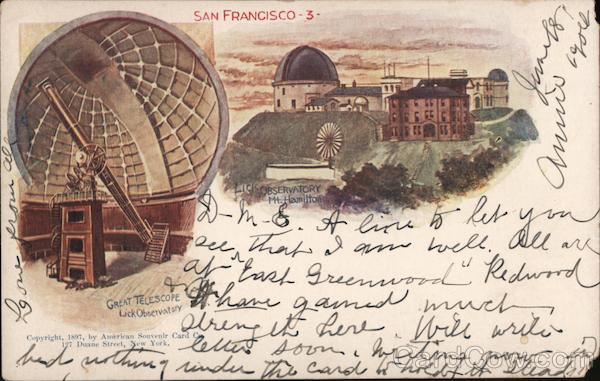 SAN FRANCISCO - 3 -
June 18
1904
Annie
Love from all
LICK OBSERVATORY
Mt. Hamilton
GREAT TELESCOPE
Lick Observatory
Copyright, 1897, by American Souvenir Card Co.
177 Duane Street, New York.
D- M- E. A line to let you
see that I am well. All are
at "East Greenwood" Redwood
& I have gained much
strength here. Will write
letter soon.
bed nothing under the card to
CardCow.com